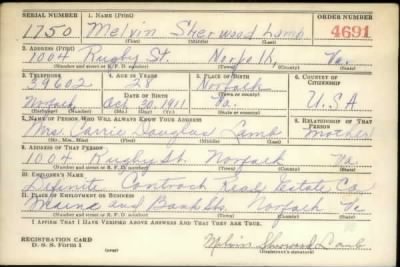 SERIAL NUMBER 1. NAME (Print) ORDER NUMBER
1750 Melvin Sherwood Lamb 4691
(First) (Middle) (Last)
2. ADDRESS (Print)
1004 Rugby St. Norfolk, Va.
(Number and street or R. F. D. number) (Town) (County) (State)
3. TELEPHONE 4. AGE IN YEARS 5. PLACE OF BIRTH 6. COUNTRY OF CITIZENSHIP
39602 28 Norfolk
DATE OF BIRTH (Town or county)
Norfolk Oct 30, 1911 Va. U.S.A
(Exchange) (Mo.) (Day) (Yr.) (State or country)
7. NAME OF PERSON WHO WILL ALWAYS KNOW YOUR ADDRESS 8. RELATIONSHIP OF THAT PERSON
Mrs. Carrie Douglas Lamb Mother
(Mr., Mrs., Miss) (First) (Middle) (Last)
9. ADDRESS OF THAT PERSON
1004 Rugby St. Norfolk Va
(Number and street or R. F. D. number) (Town) (County) (State)
10. EMPLOYER'S NAME
Contract Real Estate Co.
11. PLACE OF EMPLOYMENT OR BUSINESS
and Bank Sts. Norfolk Va
(Number and street or R. F. D. number) (Town) (County) (State)
I AFFIRM THAT I HAVE VERIFIED ABOVE ANSWERS AND THAT THEY ARE TRUE.
REGISTRATION CARD Melvin Sherwood Lamb
D. S. S. Form 1 (Registrant's signature)